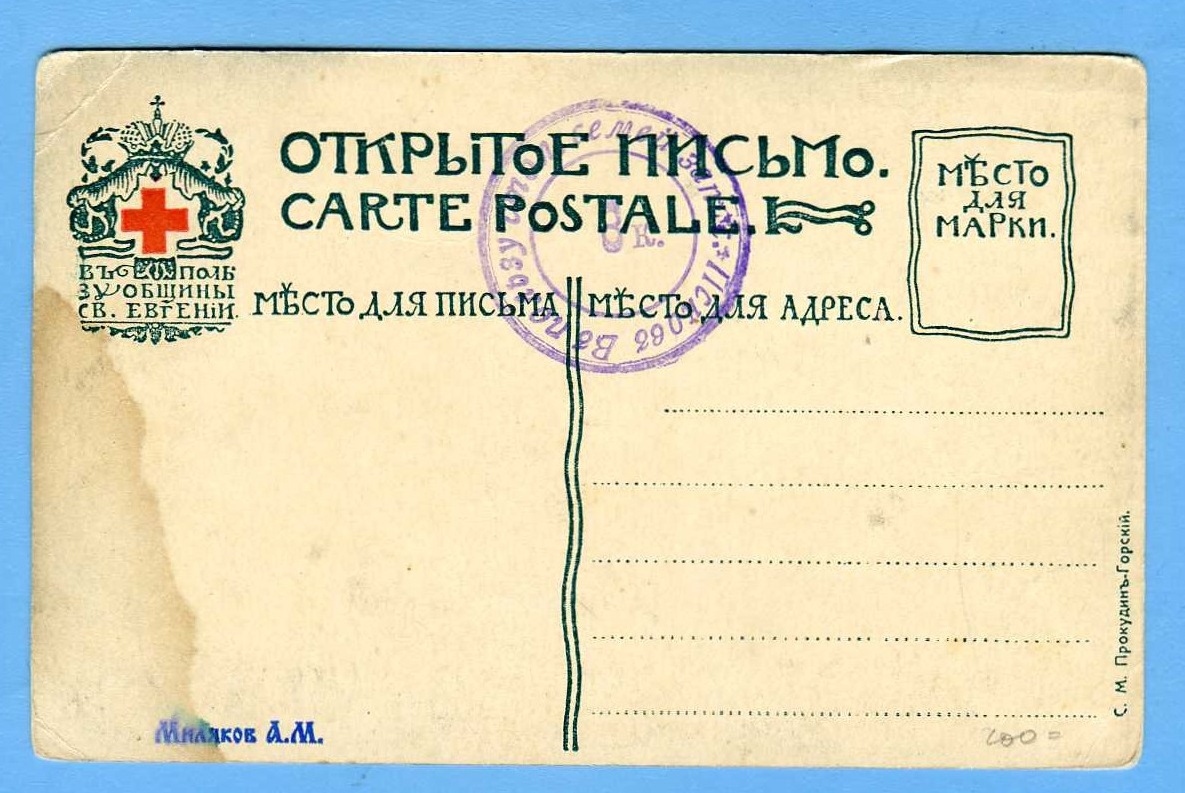 ОТКРЫТОЕ ПИСЬМО.
CARTE POSTALE.
МѢСТО
ДЛЯ
МАРКИ.
ВЪ ПОЛЬ
ЗУ ОБЩИНЫ
СВ. ЕВГЕНІИ.
МѢСТО ДЛЯ ПИСЬМА
МѢСТО ДЛЯ АДРЕСА.
Въ пользу семей запас. Псковъ
к.
С. М. Прокудинъ-Горскій.
Миляков А.М.
200=